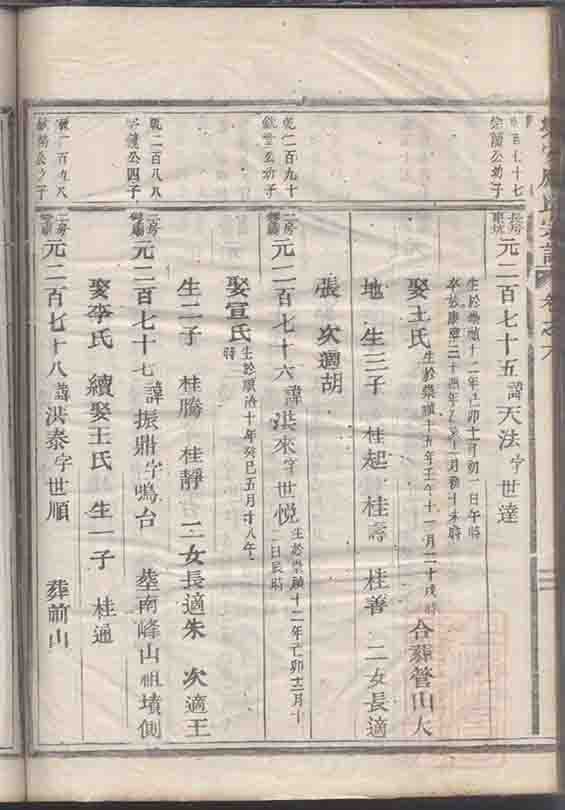 氏宗譜 卷之六
百七十七
公幼子
長房
元二百七十五 諱天法字世達
生於崇禎十二年己卯十一月初一日午時
卒於康熙二十四年乙丑十一月初十未時
娶王氏 生於崇禎十五年壬午十一月二十戌時 合葬管山大
地 生三子 桂起 桂壽 桂善 二女長適
張 次適胡
乾二百九十
公幼子
二房
元二百七十六 諱洪來字世悅 生於崇禎十二年己卯十二月十
日辰時
娶宣氏 生於順治十年癸巳五月十八午
時
生二子 桂騰 桂靜 二女長適朱 次適王
乾二百八八
公四子
二房
元二百七十七 諱振鼎字鳴台 塟南峰山祖墳側
娶李氏 續娶王氏 生一子 桂通
乾一百九八
公之子
二房
元二百七十八 諱洪泰字世順 葬前山